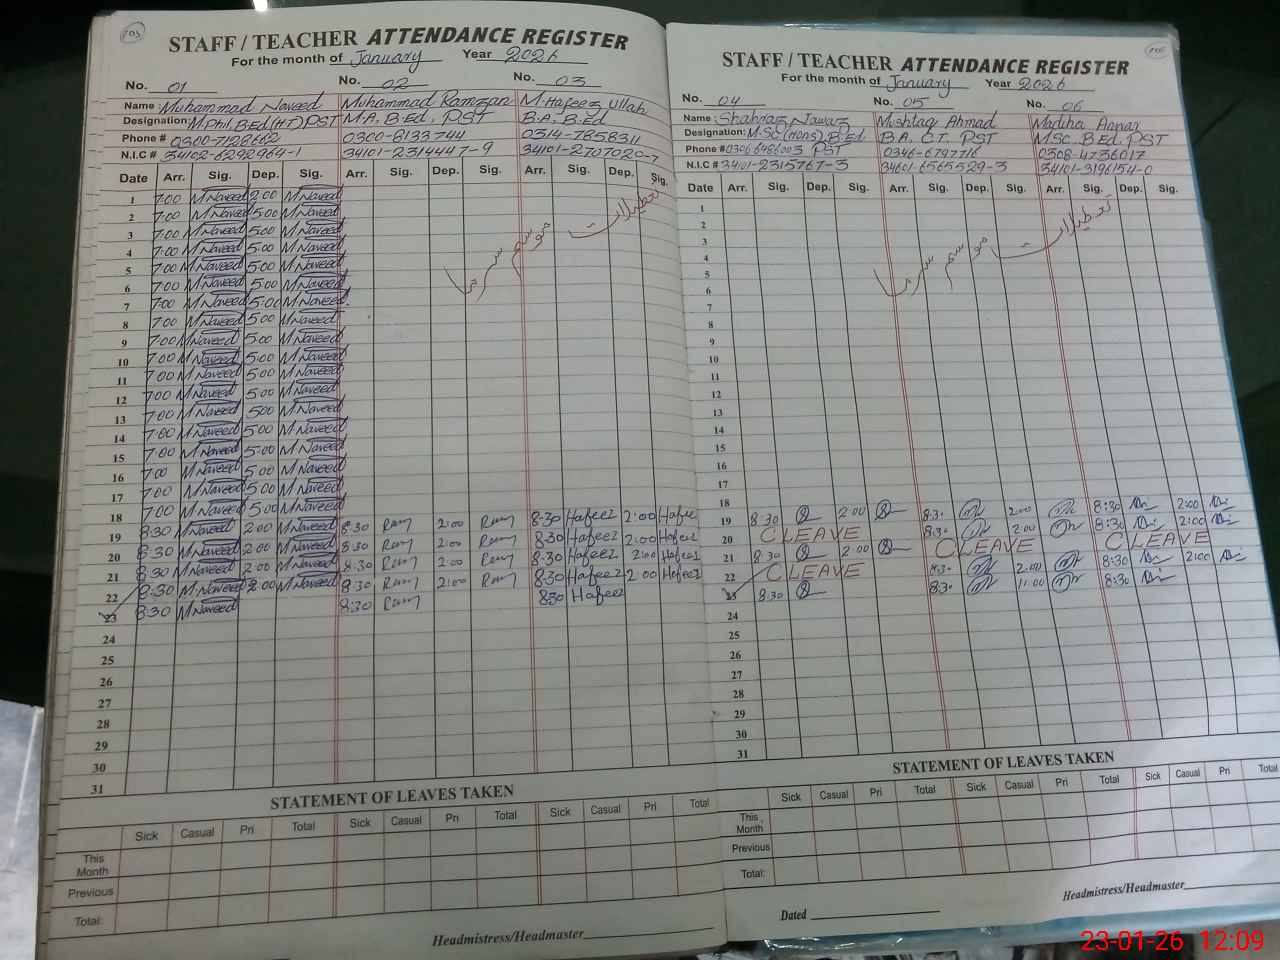 105
STAFF / TEACHER ATTENDANCE REGISTER
For the month of January Year 2026
No. 01 No. 02 No. 03
Name: Muhammad Naveed Muhammad Ramzan M. Hafeez Ullah
Designation: M.Phil, B.Ed (HT) PST M.A, B.Ed, PST B.A, B.Ed
Phone # 0300-7128662 0300-8133744 0314-7858311
N.I.C # 34102-6292964-1 34101-2314447-9 34101-2707020-7
Date Arr. Sig. Dep. Sig. Arr. Sig. Dep. Sig. Arr. Sig. Dep. Sig.
موسم سرما تعطیلات
1 7:00 M Naveed 2:00 M Naveed
2 7:00 M Naveed 5:00 M Naveed
3 7:00 M Naveed 5:00 M Naveed
4 7:00 M Naveed 5:00 M Naveed
5 7:00 M Naveed 5:00 M Naveed
6 7:00 M Naveed 5:00 M Naveed
7 7:00 M Naveed 5:00 M Naveed
8 7:00 M Naveed 5:00 M Naveed
9 7:00 M Naveed 5:00 M Naveed
10 7:00 M Naveed 5:00 M Naveed
11 7:00 M Naveed 5:00 M Naveed
12 7:00 M Naveed 5:00 M Naveed
13 7:00 M Naveed 5:00 M Naveed
14 7:00 M Naveed 5:00 M Naveed
15 7:00 M Naveed 5:00 M Naveed
16 7:00 M Naveed 5:00 M Naveed
17 7:00 M Naveed 5:00 M Naveed
18 7:00 M Naveed 5:00 M Naveed
19 8:30 M Naveed 2:00 M Naveed 8:30 Ram 2:00 Ram 8:30 Hafeez 2:00 Hafeez
20 8:30 M Naveed 2:00 M Naveed 8:30 Ram 2:00 Ram 8:30 Hafeez 2:00 Hafeez
21 8:30 M Naveed 2:00 M Naveed 8:30 Ram 2:00 Ram 8:30 Hafeez 2:00 Hafeez
22 8:30 M Naveed 2:00 M Naveed 8:30 Ram 2:00 Ram 8:30 Hafeez 2:00 Hafeez
23 8:30 M Naveed 8:30 Ram 8:30 Hafeez
24
25
26
27
28
29
30
31
STATEMENT OF LEAVES TAKEN
Sick Casual Pri Total Sick Casual Pri Total Sick Casual Pri Total
This Month
Previous
Total:
Headmistress/Headmaster
STAFF / TEACHER ATTENDANCE REGISTER
For the month of January Year 2026
No. 04 No. 05 No. 06
Name: Shahraz Nawaz Mushtaq Ahmad Madiha Annar
Designation: M.Sc (Hons), B.Ed PST B.A, C.T, PST M.Sc, B.Ed, PST
Phone # 03066486003 0346-6797716 0308-4736017
N.I.C # 34101-2315767-3 34601-6565529-3 34101-3196154-0
Date Arr. Sig. Dep. Sig. Arr. Sig. Dep. Sig. Arr. Sig. Dep. Sig.
موسم سرما تعطیلات
1
2
3
4
5
6
7
8
9
10
11
12
13
14
15
16
17
18
19 8:30 2:00 8:30 2:00 8:30 2:00
20 C LEAVE 8:30 2:00 8:30 2:00
21 8:30 2:00 C LEAVE C LEAVE
22 C LEAVE 8:30 2:00 8:30 2:00
23 8:30 8:30 11:00 8:30
24
25
26
27
28
29
30
31
STATEMENT OF LEAVES TAKEN
Sick Casual Pri Total Sick Casual Pri Total Sick Casual Pri Total
This Month
Previous
Total:
Headmistress/Headmaster
Dated
23-01-26 12:09